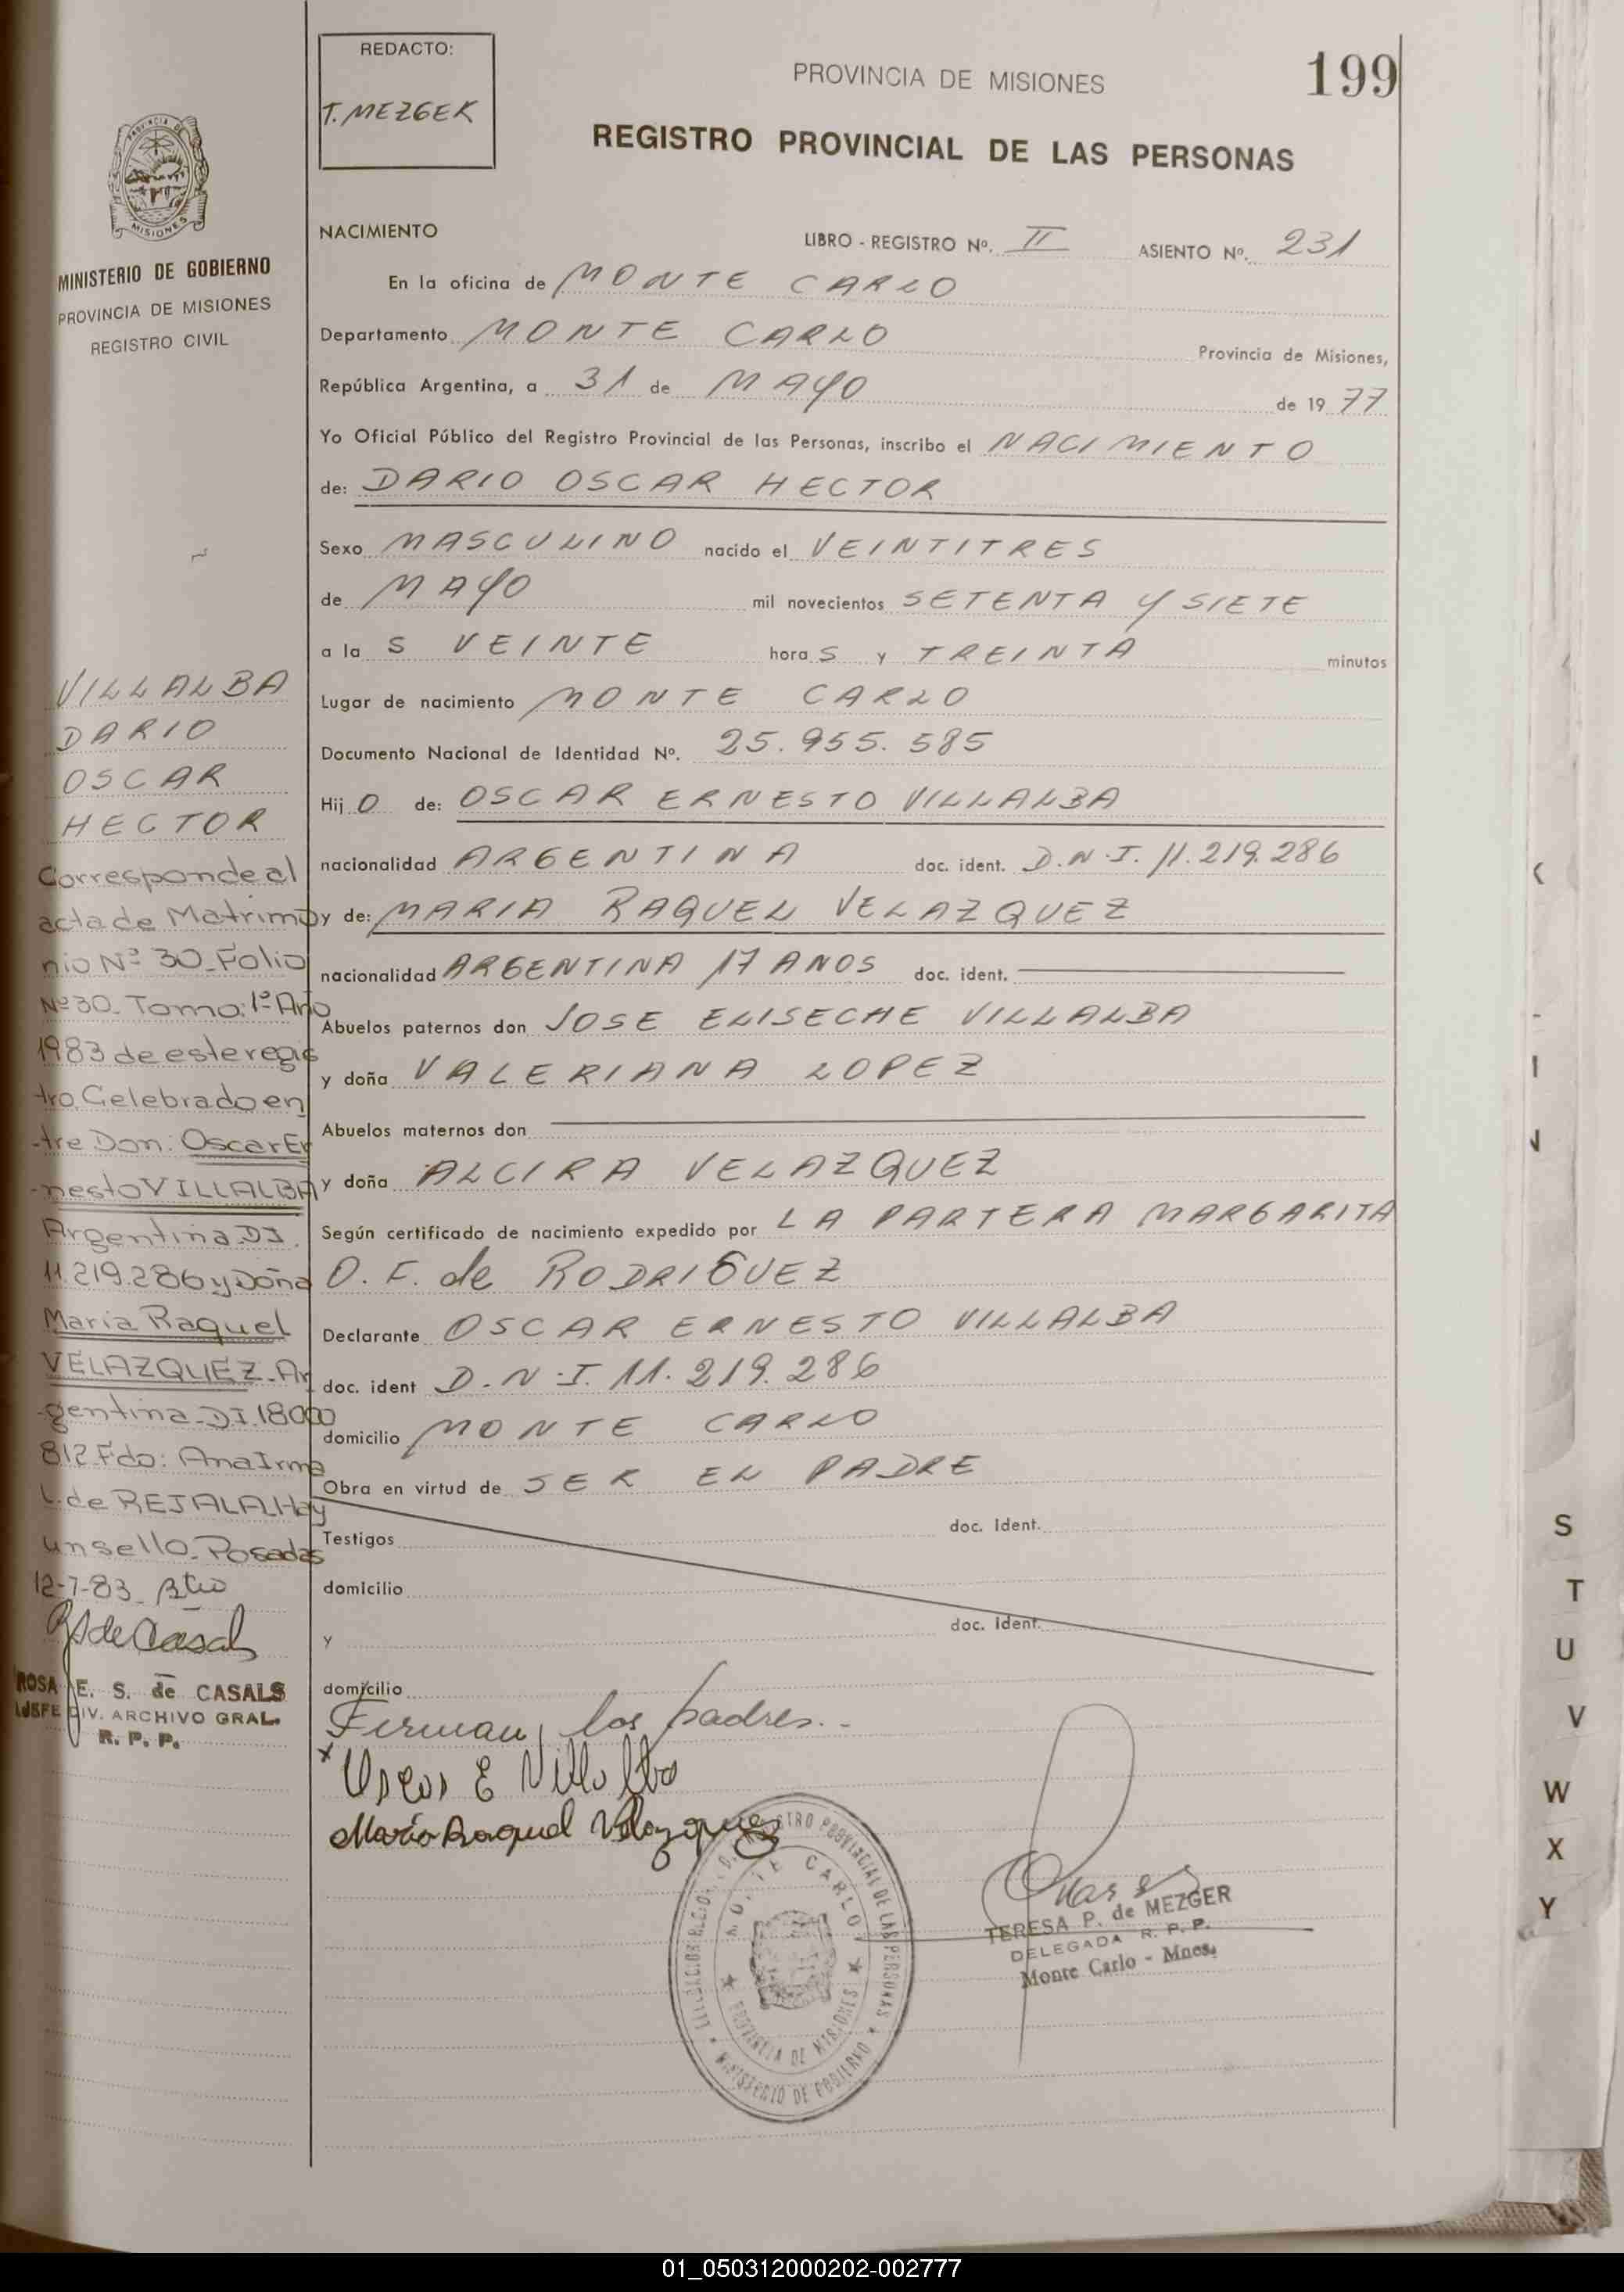 REDACTO:
T. MEZGER
PROVINCIA DE MISIONES
199
REGISTRO PROVINCIAL DE LAS PERSONAS
PROVINCIA DE
MISIONES
MINISTERIO DE GOBIERNO
PROVINCIA DE MISIONES
REGISTRO CIVIL
NACIMIENTO
LIBRO - REGISTRO Nº. II ASIENTO Nº. 231
En la oficina de MONTE CARLO
Departamento MONTE CARLO Provincia de Misiones,
República Argentina, a 31 de MAYO de 19 77
Yo Oficial Público del Registro Provincial de las Personas, inscribo el NACIMIENTO
de: DARIO OSCAR HECTOR
Sexo MASCULINO nacido el VEINTITRES
de MAYO mil novecientos SETENTA Y SIETE
a la S VEINTE hora S y TREINTA minutos
Lugar de nacimiento MONTE CARLO
Documento Nacional de Identidad Nº. 25.955.585
Hij O de: OSCAR ERNESTO VILLALBA
nacionalidad ARGENTINA doc. ident. D.N.I. 11.219.286
y de: MARIA RAQUEL VELAZQUEZ
nacionalidad ARGENTINA 17 ANOS doc. ident.
Abuelos paternos don JOSE ELISECHE VILLALBA
y doña VALERIANA LOPEZ
Abuelos maternos don
y doña ALCIRA VELAZQUEZ
Según certificado de nacimiento expedido por LA PARTERA MARGARITA
O. F. de RODRIGUEZ
Declarante OSCAR ERNESTO VILLALBA
doc. ident D.N.I. 11.219.286
domicilio MONTE CARLO
Obra en virtud de SER EL PADRE
Testigos doc. Ident.
domicilio
y doc. ident.
domicilio
Firman los padres.-
x Oscar E Villalba
Maria Raquel Velazquez
VILLALBA
DARIO
OSCAR
HECTOR
Corresponde al
acta de Matrimo
nio Nº 30_Folio
Nº 30_ Tomo: 1º Año
1983 de este regis
tro. Celebrado en
-tre Don: Oscar Er
-nesto VILLALBA
Argentina. DI.
11.219.286 y Doña
Maria Raquel
VELAZQUEZ_Ar
-gentina_DI.18000
812. Fdo: Ana Irma
L. de REJALA. Hay
un sello_Posadas
12-7-83_
ROSA E. S. de CASALS
JEFE DIV. ARCHIVO GRAL.
R. P. P.
REGISTRO PROVINCIAL DE LAS PERSONAS
MONTE CARLO
PROVINCIA DE MISIONES
MINISTERIO DE GOBIERNO
TERESA P. de MEZGER
DELEGADA R. P. P.
Monte Carlo - Mnes.
S
T
U
V
W
X
Y
01_050312000202-002777